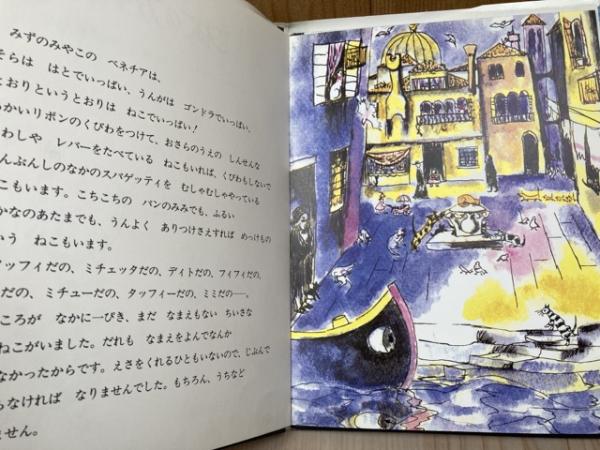 みずのみやこの ベネチアは、
そらは はとでいっぱい、うんがは ゴンドラでいっぱい、
とおりというとおりは ねこでいっぱい！
っかいリボンのくびわをつけて、おさらのうえの しんせんな
わしや レバーをたべている ねこもいれば、くびわもしないで
んぶんしのなかのスパゲッティを むしゃむしゃやっている
こもいます。こちこちの パンのみみでも、ふるい
かなのあたまでも、うんよく ありつけさえすれば めっけもの
いう ねこもいます。
ッフィだの、ミチェッタだの、ディトだの、フィフィだの、
だの、ミチューだの、タッフィーだの、ミミだの──。
ころが なかに一ぴき、まだ なまえもない ちいさな
ねこがいました。だれも なまえをよんでなんか
なかったからです。えさをくれるひともいないので、じぶんで
らなければ なりませんでした。もちろん、うちなど
ません。